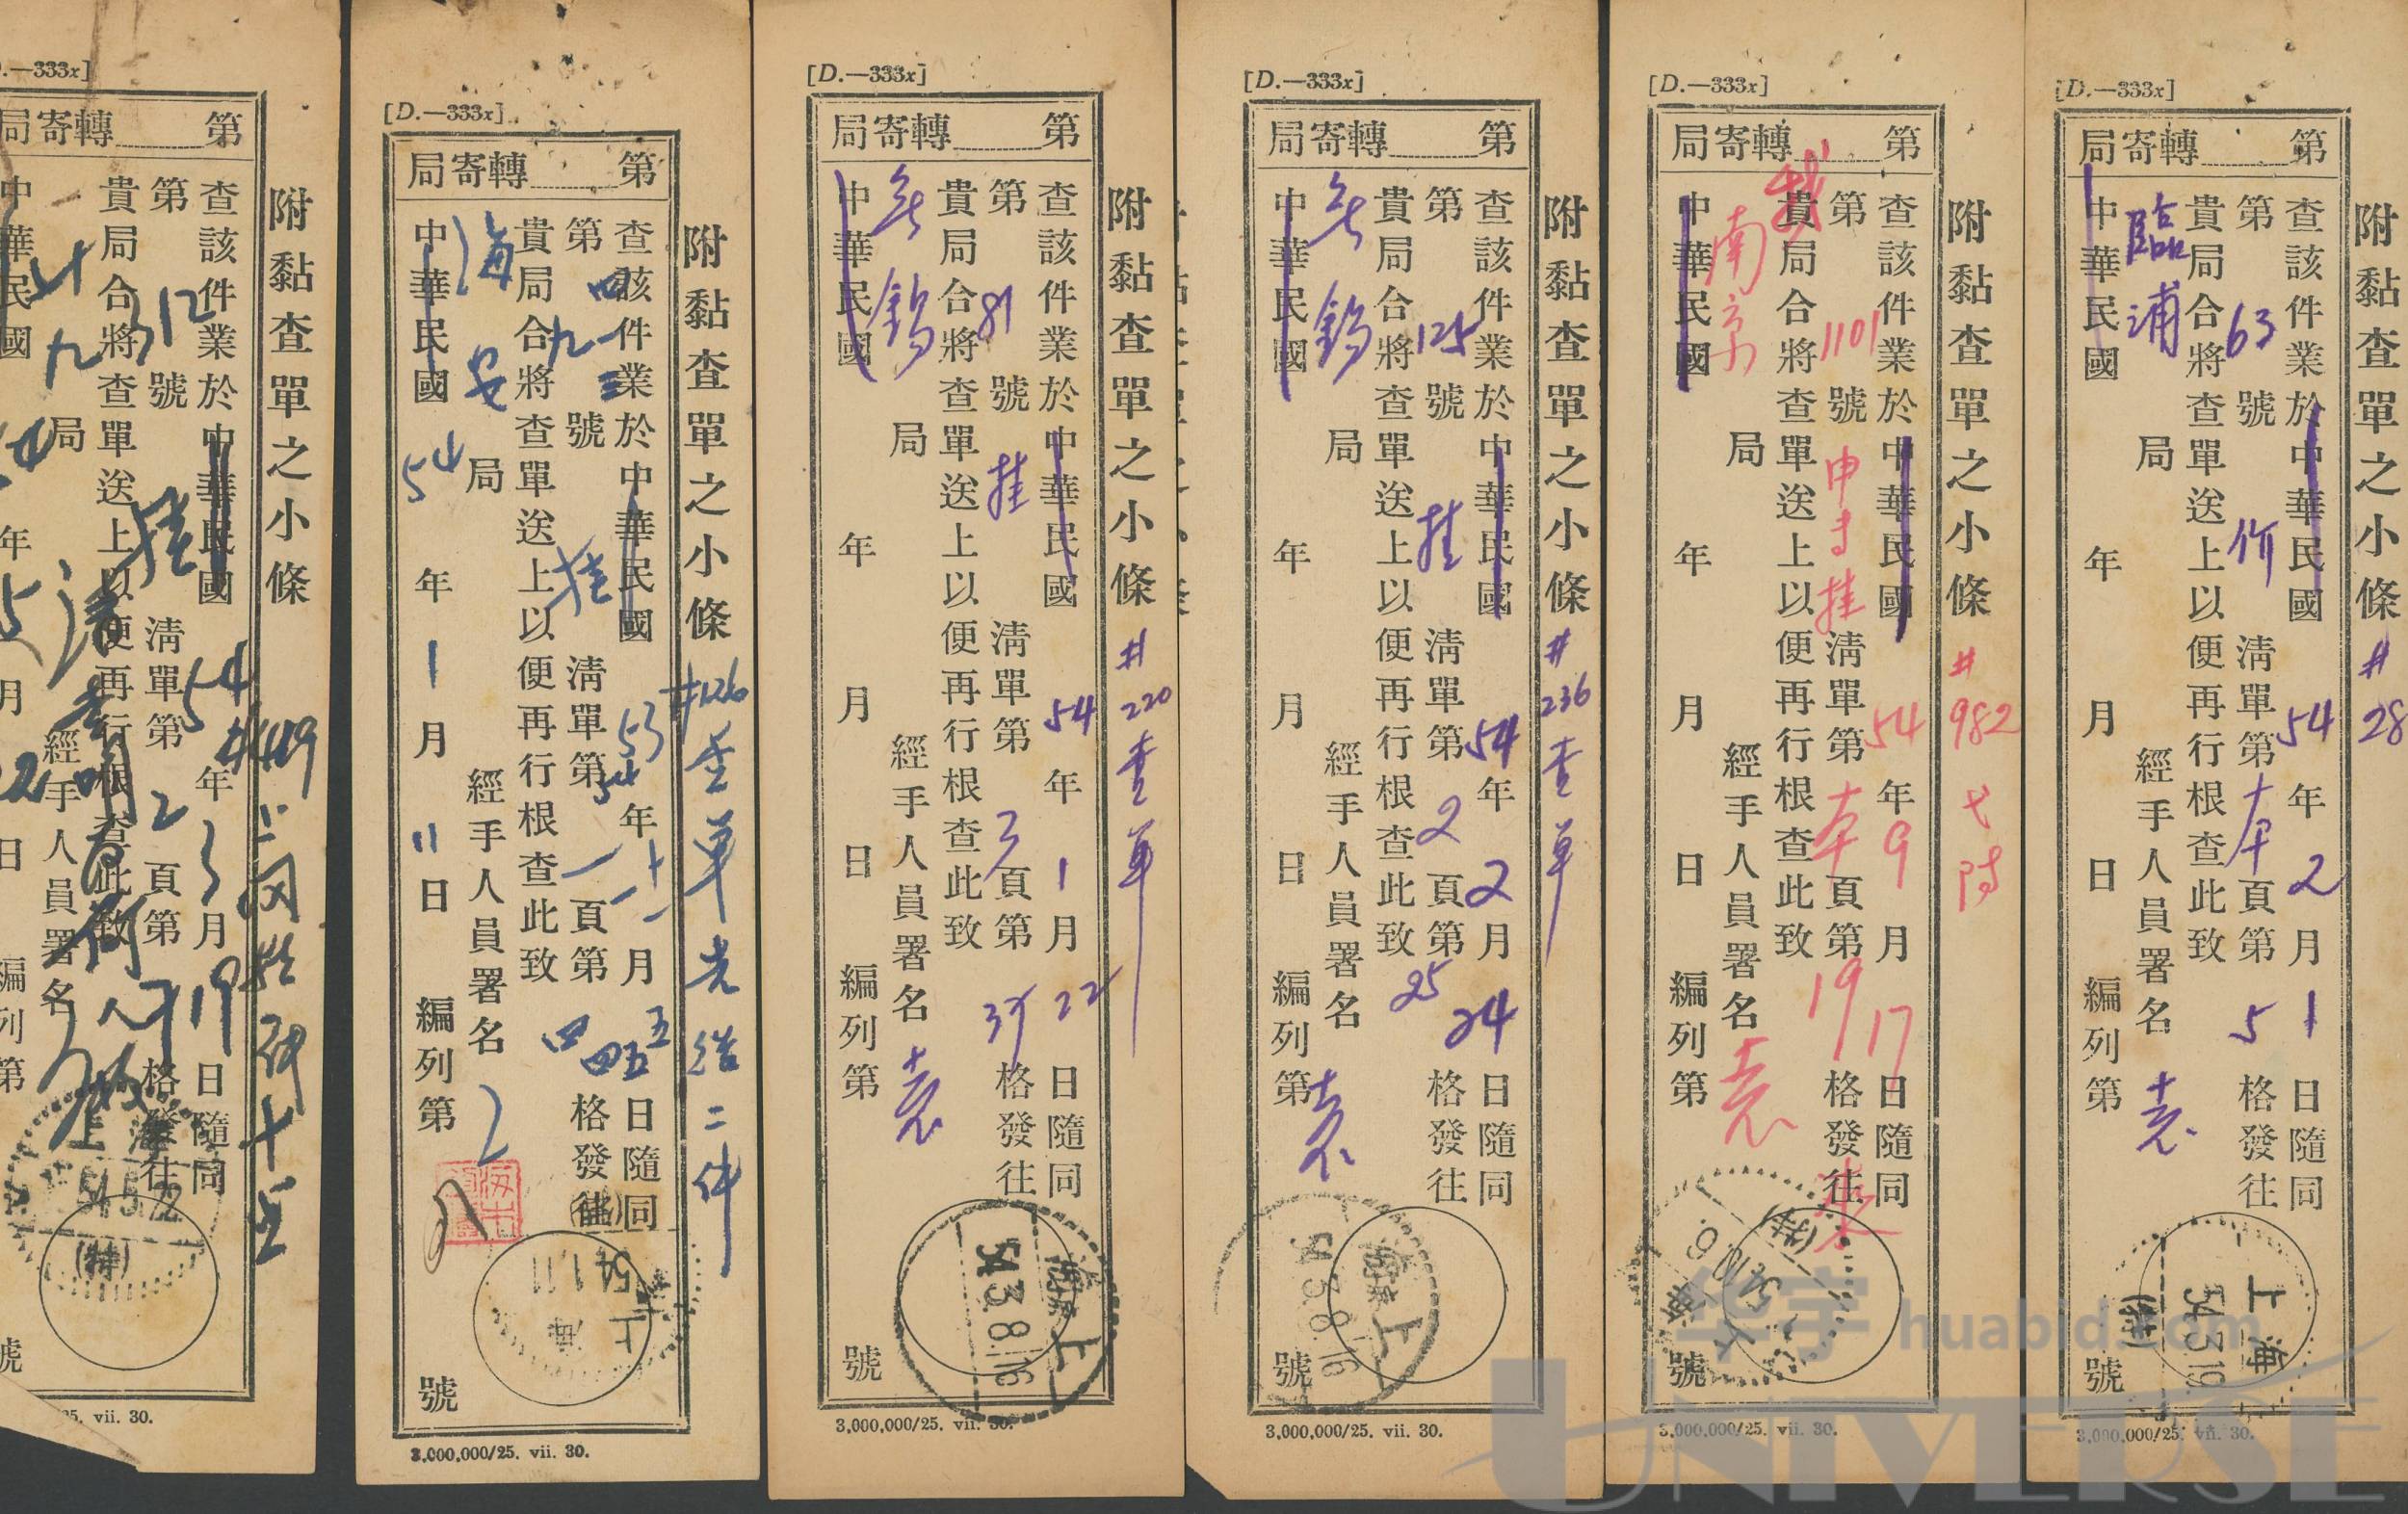 [D.—333x]
附黏查單之小條
#28
局寄轉 第
查該件業於中華民國54年2月1日隨同
第63號 清單第 頁第5格發往
貴局合將查單送上以便再行根查此致
臨浦局 經手人員署名 袁
中華民國 年 月 日 編列第 號
上海 54.3.19
3,000,000/25. vii. 30.
[D.—333x]
附黏查單之小條
#982
局寄轉 第
查該件業於中華民國54年9月17日隨同
第1101號 挂清單第 頁第19格發往
貴局合將查單送上以便再行根查此致
南京局 經手人員署名 袁
中華民國 年 月 日 編列第 號
3,000,000/25. vii. 30.
[D.—333x]
附黏查單之小條
#236查單
局寄轉 第
查該件業於中華民國54年2月24日隨同
第125號 挂清單第2頁第25格發往
貴局合將查單送上以便再行根查此致
无錫局 經手人員署名 袁
中華民國 年 月 日 編列第 號
上海 54.3.8.16
3,000,000/25. vii. 30.
[D.—333x]
附黏查單之小條
#220查單
局寄轉 第
查該件業於中華民國54年1月22日隨同
第81號 挂清單第3頁第37格發往
貴局合將查單送上以便再行根查此致
无錫局 經手人員署名 袁
中華民國 年 月 日 編列第 號
上海 54.3.8.16
3,000,000/25. vii. 30.
[D.—333x]
附黏查單之小條
#126查單
二件
局寄轉 第
查該件業於中華民國 年 月 日隨同
第 號 挂清單第 頁第 格發往
貴局合將查單送上以便再行根查此致
海安局 經手人員署名
中華民國54年1月11日 編列第 號
上海 54.1.11
3,000,000/25. vii. 30.
.—333x]
附黏查單之小條
#449
局寄轉 第
查該件業於中華民國54年3月19日隨同
第312號 挂清單第2頁第 格發往
貴局合將查單送上以便再行根查此致
局 經手人員署名
中華民國54年5月22日 編列第 號
上海 54.5.22
25. vii. 30.
华宇 huabid.com
UNIVERSE